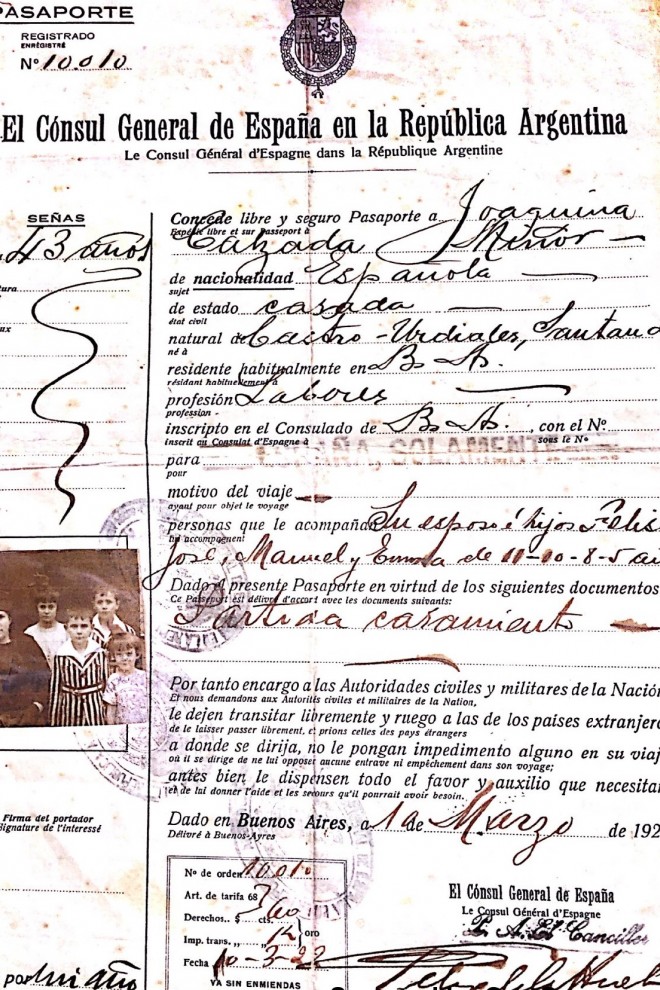 PASAPORTE
REGISTRADO
ENRÉGISTRÉ
Nº 10010
El Cónsul General de España en la República Argentina
Le Consul Général d'Espagne dans la République Argentine
SEÑAS
43 años
Concede libre y seguro Pasaporte a Joaquina
Expédie libre et sur Passeport à
Calzada Miñor
de nacionalidad Española
sujet
de estado casada
état civil
natural de Castro-Urdiales, Santand
né à
residente habitualmente en Bs As.
résidant habituellement à
profesión Labores
profession -
inscripto en el Consulado de Bs As. , con el Nº
inscrit au Consulat d'Espagne à sous le Nº
ESPAÑA, SOLAMENTE
para
pour
motivo del viaje
ayant pour objet le voyage
personas que le acompañan Su esposo é hijos Felis
qui accompagnent
José, Manuel y Emma de 11-10-8-5 añ
Dado el presente Pasaporte en virtud de los siguientes documentos
Ce Passeport est délivré d'accort avec les documents suivants:
Partida casamiento
Por tanto encargo a las Autoridades civiles y militares de la Nación
Et nous demandons aux Autorités civiles et militaires de la Nation,
le dejen transitar libremente y ruego a las de los países extranjero
de le laisser passer librement, et prions celles des pays étrangers
a donde se dirija, no le pongan impedimento alguno en su viaj
où il se dirige de ne lui opposer aucune entrave ni empêchement dans son voyage;
antes bien le dispensen todo el favor y auxilio que necesitar
et de lui donner l'aide et les secours qu'il pourrait avoir besoin.
Firma del portador
Signature de l'interessé
Dado en Buenos Aires, a 10 de Marzo de 192
Délivré à Buenos-Ayres
Nº de orden 10010
Art. de tarifa 68
Derechos.. $ cts.
Imp. trans. ,, ,, oro
Fecha 10-3-22
VA SIN ENMIENDAS
El Cónsul General de España
Le Consul Général d'Espagne
P. A. El Canciller
por un año